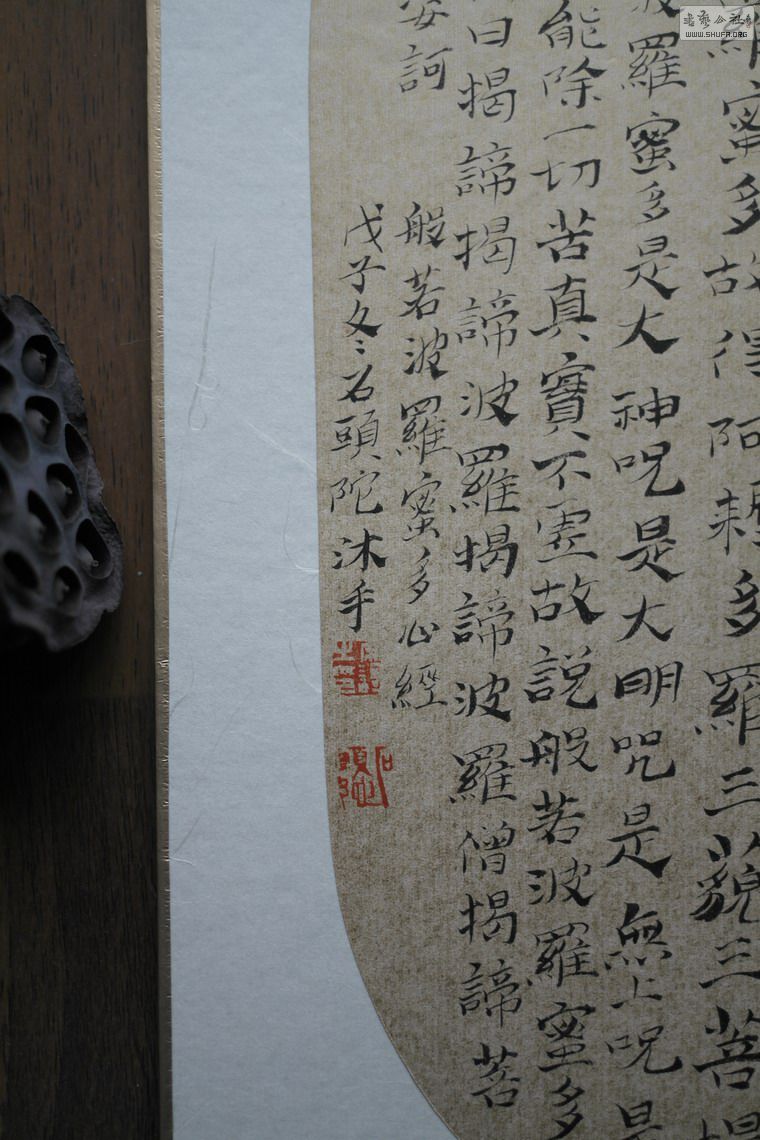 羅蜜多故得阿耨多羅三藐三菩提
波羅蜜多是大神呪是大明呪是無上呪是
能除一切苦真實不虛故說般若波羅蜜多
曰揭諦揭諦波羅揭諦波羅僧揭諦菩
訶
般若波羅蜜多心經
戊子冬石頭陀沐手
WWW.SHUFA.ORG